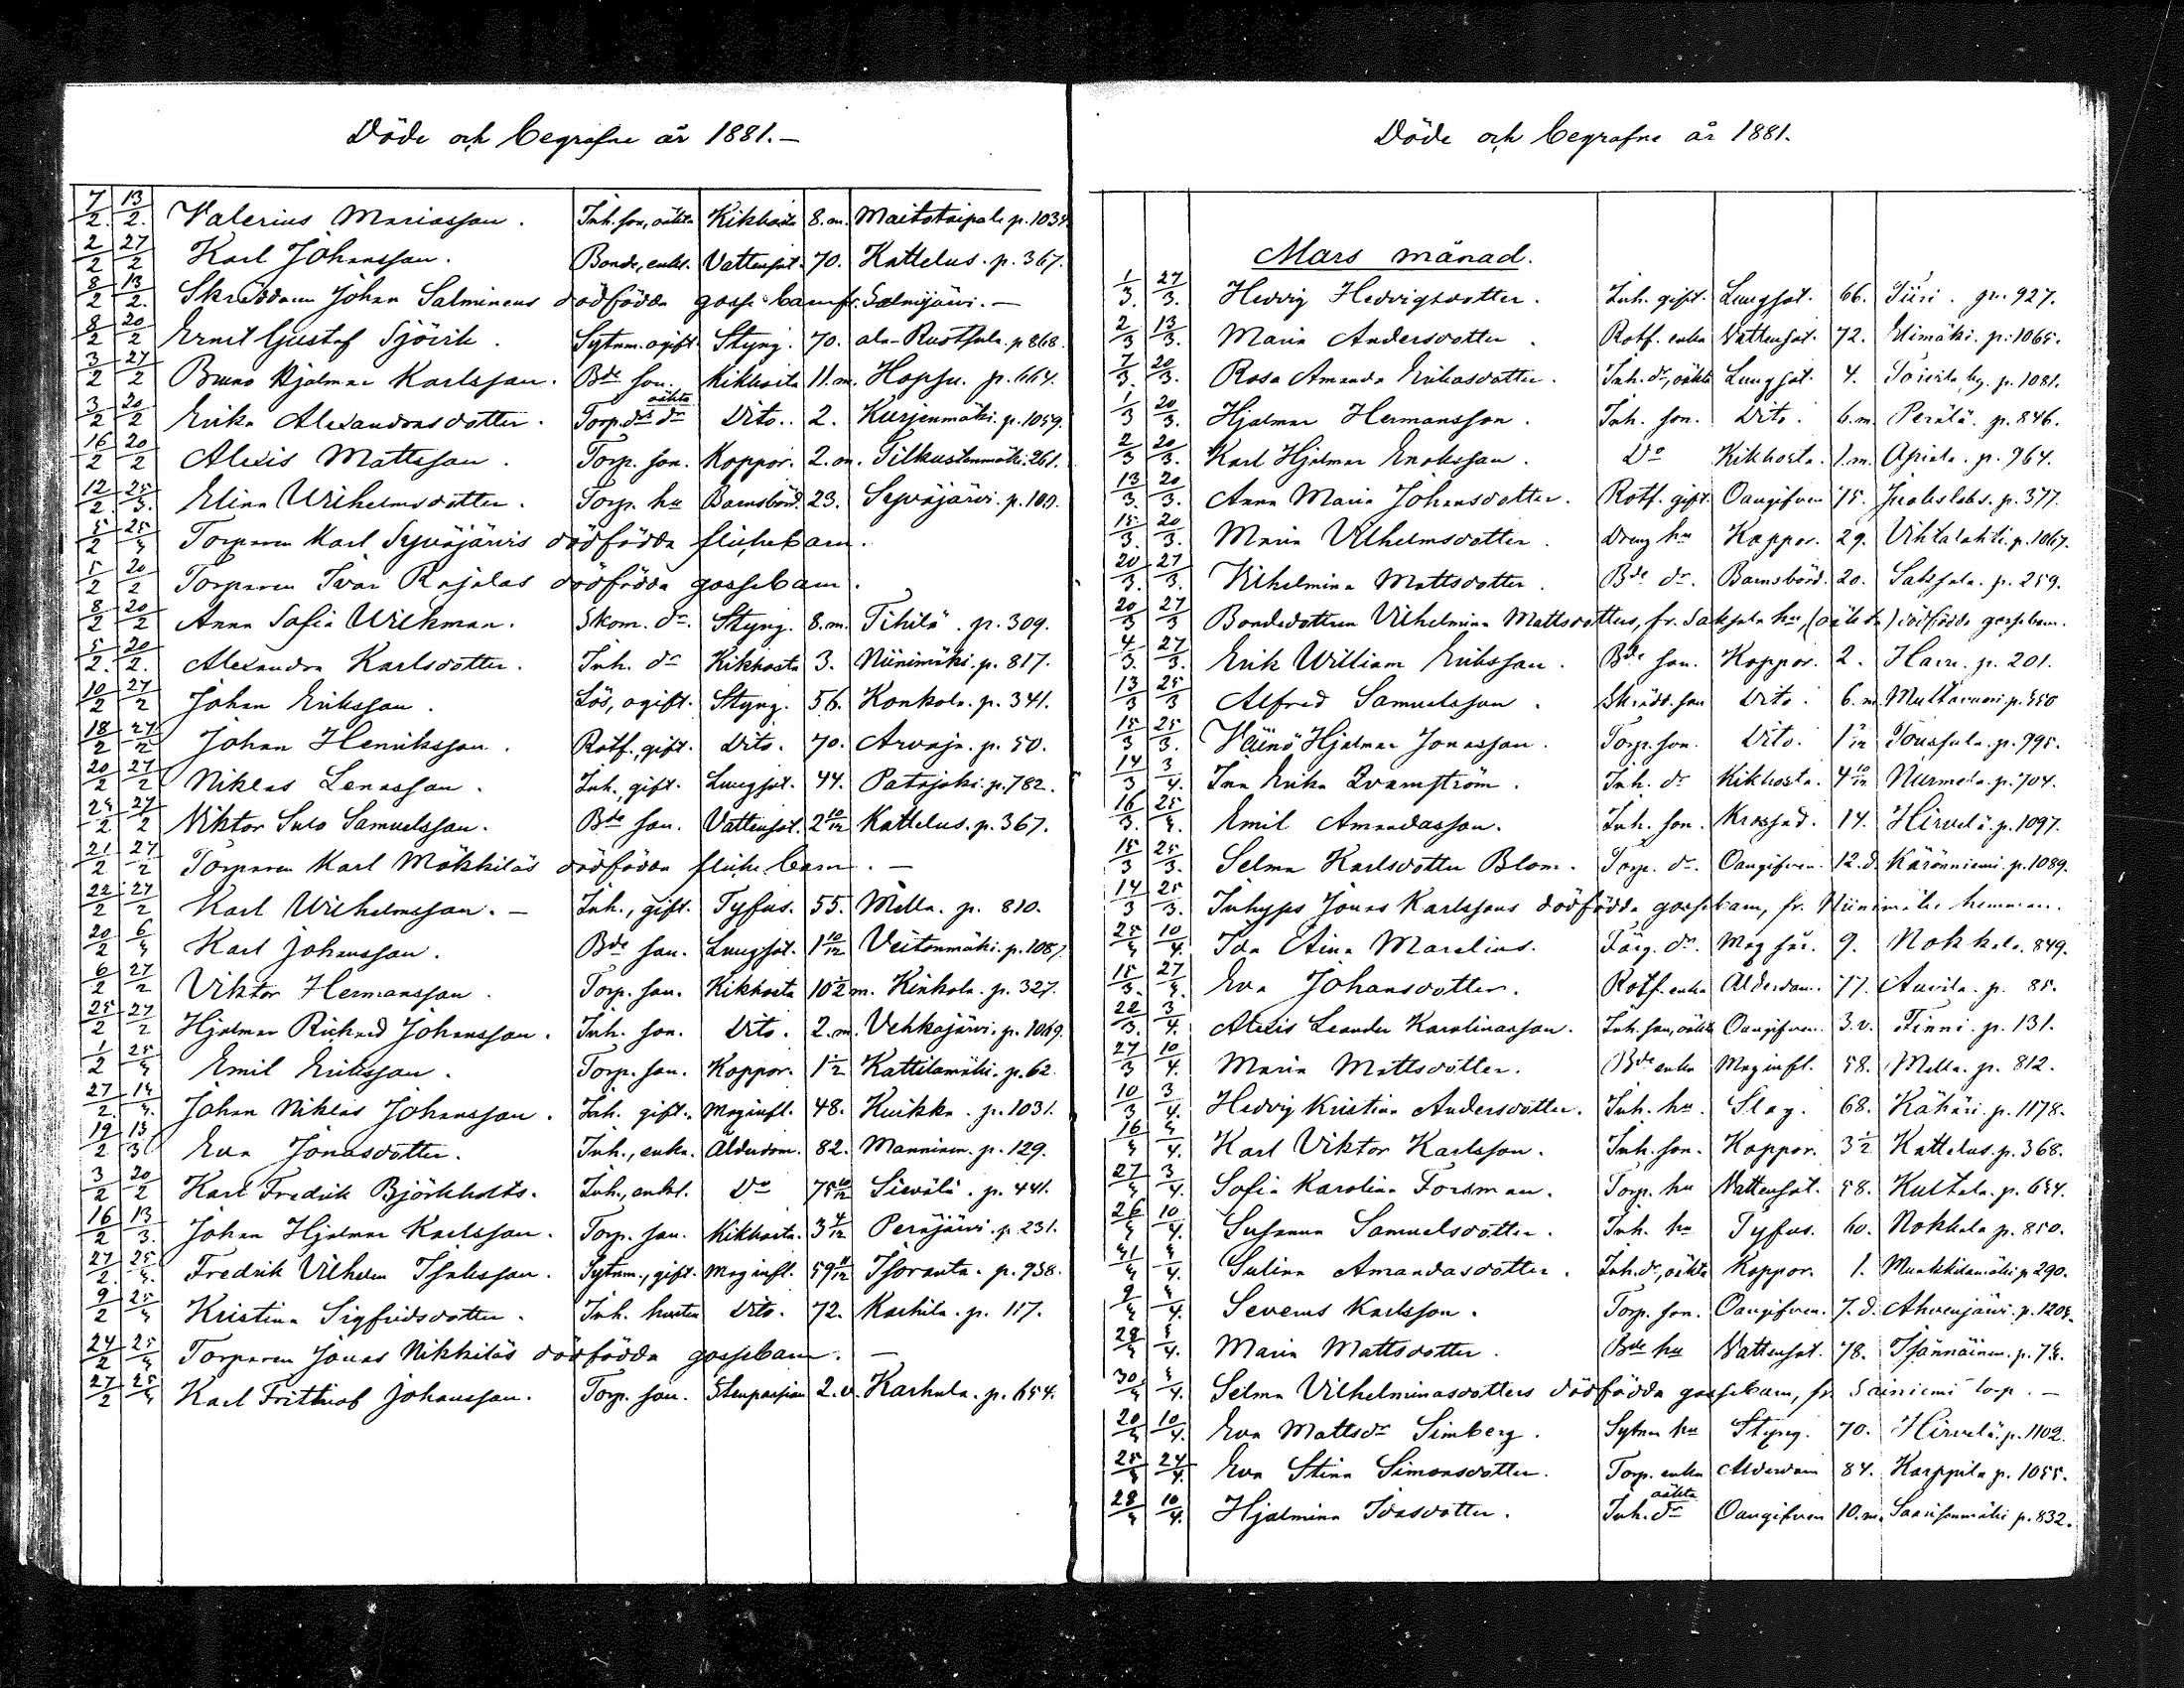 Döde och begrafne år 1881.—
7/2. 13/2. Valerius Mariasson. Inh. son, oäkta Kikhosta 8. m. Maitotaipale p. 1034.
2/2 27/2 Karl Johansson. Bonde, enkl. Vattensot. 70. Kattelus. p. 367.
8/2 13/2. Skräddaren Johan Salminens dödfödda gossebarn fr. Salmijärvi.—
8/2 20/2 Ernst Gustaf Sjövik. Sytnm. ogift. Styng. 70. ala-Rustfala. p 868.
3/2 27/2 Bruno Hjalmar Karlsson. Bde son. Kikhosta 11. m. Hapsu. p. 664.
3/2 20/2 Erika Alexandrasdotter. Torp. drs dr oäkta Dito. 2. Kurjenmäki. p. 1059.
16/2 20/2 Alexis Mattsson. Torp. son. Koppor. 2. m. Tilkustenmäki. 261.
12/2 25/3. Elina Wilhelmsdotter. Torp. hu Barnsbörd. 23. Syväjärvi. p. 100.
5/2 25/3 Torparen Karl Syväjärvis dödfödda flickebarn.
5/2 20/2 Torparen Ivar Rajalas dödfödda gossebarn.
8/2 20/2 Anna Sofia Wilkman. Skom. dr. Styng. 8. m. Tihilä. p. 309.
5/2. 20/2. Alexandra Karlsdotter. Inh. dr Kikhosta 3. Niinimäki. p. 817.
10/2 27/2 Johan Eriksson. Lös, ogift. Styng. 56. Konkola. p. 341.
18/2 27/2 Johan Henriksson. Rotf., gift. Dito. 70. Arvaja. p. 50.
20/2 27/2 Niklas Lenasson. Inh., gift. Lungsot. 44. Patajoki. p. 782.
24/2 27/2 Viktor Sulo Samuelsson. Bde son. Vattensot. 2 10/12 Kattelus. p. 367.
21/2 27/2 Torparen Karl Mökkiläs dödfödda flickebarn.—
22/2 27/2 Karl Wilhelmsson.— Inh., gift. Tyfus. 55. Mella. p. 810.
20/2 6/3 Karl Johansson. Bde son. Lungsot. 1 10/12 Veitonmäki. p. 1087.
6/2 27/2 Viktor Hermansson. Torp. son. Kikhosta 10 1/2 m. Kinkola. p. 327.
25/2 27/2 Hjalmar Richard Johansson. Inh. son. Dito. 2. m. Vehkajärvi. p. 1069.
1/2 25/3 Emil Eriksson. Torp. son. Koppor. 1 1/2 Kattilamäki. p. 62.
27/2. 14/3. Johan Niklas Johansson. Inh. gift. Maginfl. 48. Kuikka. p. 1031.
19/2 13/3 Eva Jonasdotter. Inh., enka. Ålderdom. 82. Manninen. p. 129.
3/2 20/2 Karl Fredrik Björkholts. Inh., enkl. Do 75 10/12 Sievälä. p. 441.
16/2 13/3. Johan Hjalmar Karlsson. Torp. son. Kikhosta. 3 4/12 Peräjärvi. p. 231.
27/2. 25/3. Fredrik Vilhelm Isaksson. Sytnm., gift. Maginfl. 59 11/12 Isoranta. p. 938.
9/2 25/3 Kristina Sigfridsdotter. Inh. hustru Dito. 72. Karhila. p. 117.
24/2 25/3 Torparen Jonas Nikkiläs dödfödda gossebarn.—
27/2 25/3 Karl Frithiof Johansson. Torp. son. Stenpassion 2. v. Karhula. p. 654.
Döde och begrafne år 1881.
Mars månad.
1/3. 27/3. Hedvig Hedvigsdotter. Inh. gift. Lungsot. 66. Siiri. p. 927.
2/3 13/3. Maria Andersdotter. Rotf. enka Vattensot. 72. Elimäki. p. 1065.
7/3. 20/3. Rosa Amanda Erikasdotter. Inh. dr, oäkta Lungsot. 4. p. 1081.
1/3 20/3 Hjalmar Hermansson. Inh. son. Dito. 6. m. Perälä. p. 846.
2/3 20/3. Karl Hjalmar Enoksson. Do Kikhosta. 1. m. Apiala. p. 964.
13/3. 20/3. Anna Maria Johansdotter. Rotf. gift. Oangifven 75. p. 377.
15/3. 20/3. Maria Vilhelmsdotter. Dreng hu Koppor. 29. Vihtalahti. p. 1067.
20/3. 27/3. Vilhelmina Mattsdotter. Bde dr. Barnsbörd. 20. Saksala. p. 259.
20/3 27/3 Bondedottren Vilhelmina Mattsdotters, fr. Saksala hn, (oäkta) dödfödda gossebarn.
4/3. 27/3. Erik William Eriksson. Bde son. Koppor. 2. Haru. p. 201.
13/3 25/3 Alfred Samuelsson. Skrädd. son Dito. 6. m. Multavuori. p. 550
15/3 25/3. Väinö Hjalmar Jonasson. Torp. son. Dito. 1 2/12 Poussula. p. 995.
14/3 3/4. Ina Erika Qvarnström. Inh. dr Kikhosta. 4 10/12 Nurmela. p. 704.
16/3. 25/3. Emil Amandasson. Inh. son. Krossad. 14. Hirvelä. p. 1097.
15/3 25/3. Selma Karlsdotter Blom. Torp. dr. Oangifven. 12. d. Käränniemi. p. 1089.
14/3 25/3. Inhyses Jonas Karlssons dödfödda gossebarn, fr. Niinimäki hemman.
25/3 10/4. Ida Aina Marelius. Färg. dr. Mag sår. 9. Nokkala. 849.
15/3. 27/3. Eva Johansdotter. Rotf. enka Ålderdom. 77. Auvila. p. 85.
22/3. 3/4. Alexis Leander Karolinasson. Inh. son, oäkta Oangifven. 3. v. Finni. p. 131.
27/3 10/4. Maria Mattsdotter. Bde enka Maginfl. 58. Mella. p. 812.
10/3 3/4. Hedvig Kristina Andersdotter. Inh. hu. Slag. 68. Kähäri. p. 1178.
16/3 3/4. Karl Viktor Karlsson. Inh. son. Koppor. 3 1/2 Kattelus. p. 368.
27/3 3/4. Sofia Karolina Forsman. Torp. hu Vattensot. 58. Kultala. p. 654.
26/3 10/4. Susanna Samuelsdotter. Inh. hu Tyfus. 60. Nokkala p. 850.
31/3 3/4. Sulina Amandasdotter. Inh. dr, oäkta Koppor. 1. Munkkilamäki p. 290.
9/3 3/4. Severus Karlsson. Torp. son. Oangifven. 7. d. Ahvenjärvi. p. 1204.
28/3 3/4. Maria Mattsdotter. Bde hu Vattensot. 78. Isännäinen. p. 74.
30/3 3/4. Selma Vilhelminasdotters dödfödda gossebarn, fr. Sariniemi torp.—
20/3 10/4. Eva Mattsdr Simberg. Sytnm hu Styng. 70. Hirvelä. p. 1102.
25/3 24/4. Eva Stina Simonsdotter. Torp. enka Ålderdom 84. Karppila p. 1055.
28/3 10/4. Hjalmina Idasdotter. Inh. dr oäkta Oangifven 10. m. Saarisenmäki p. 832.